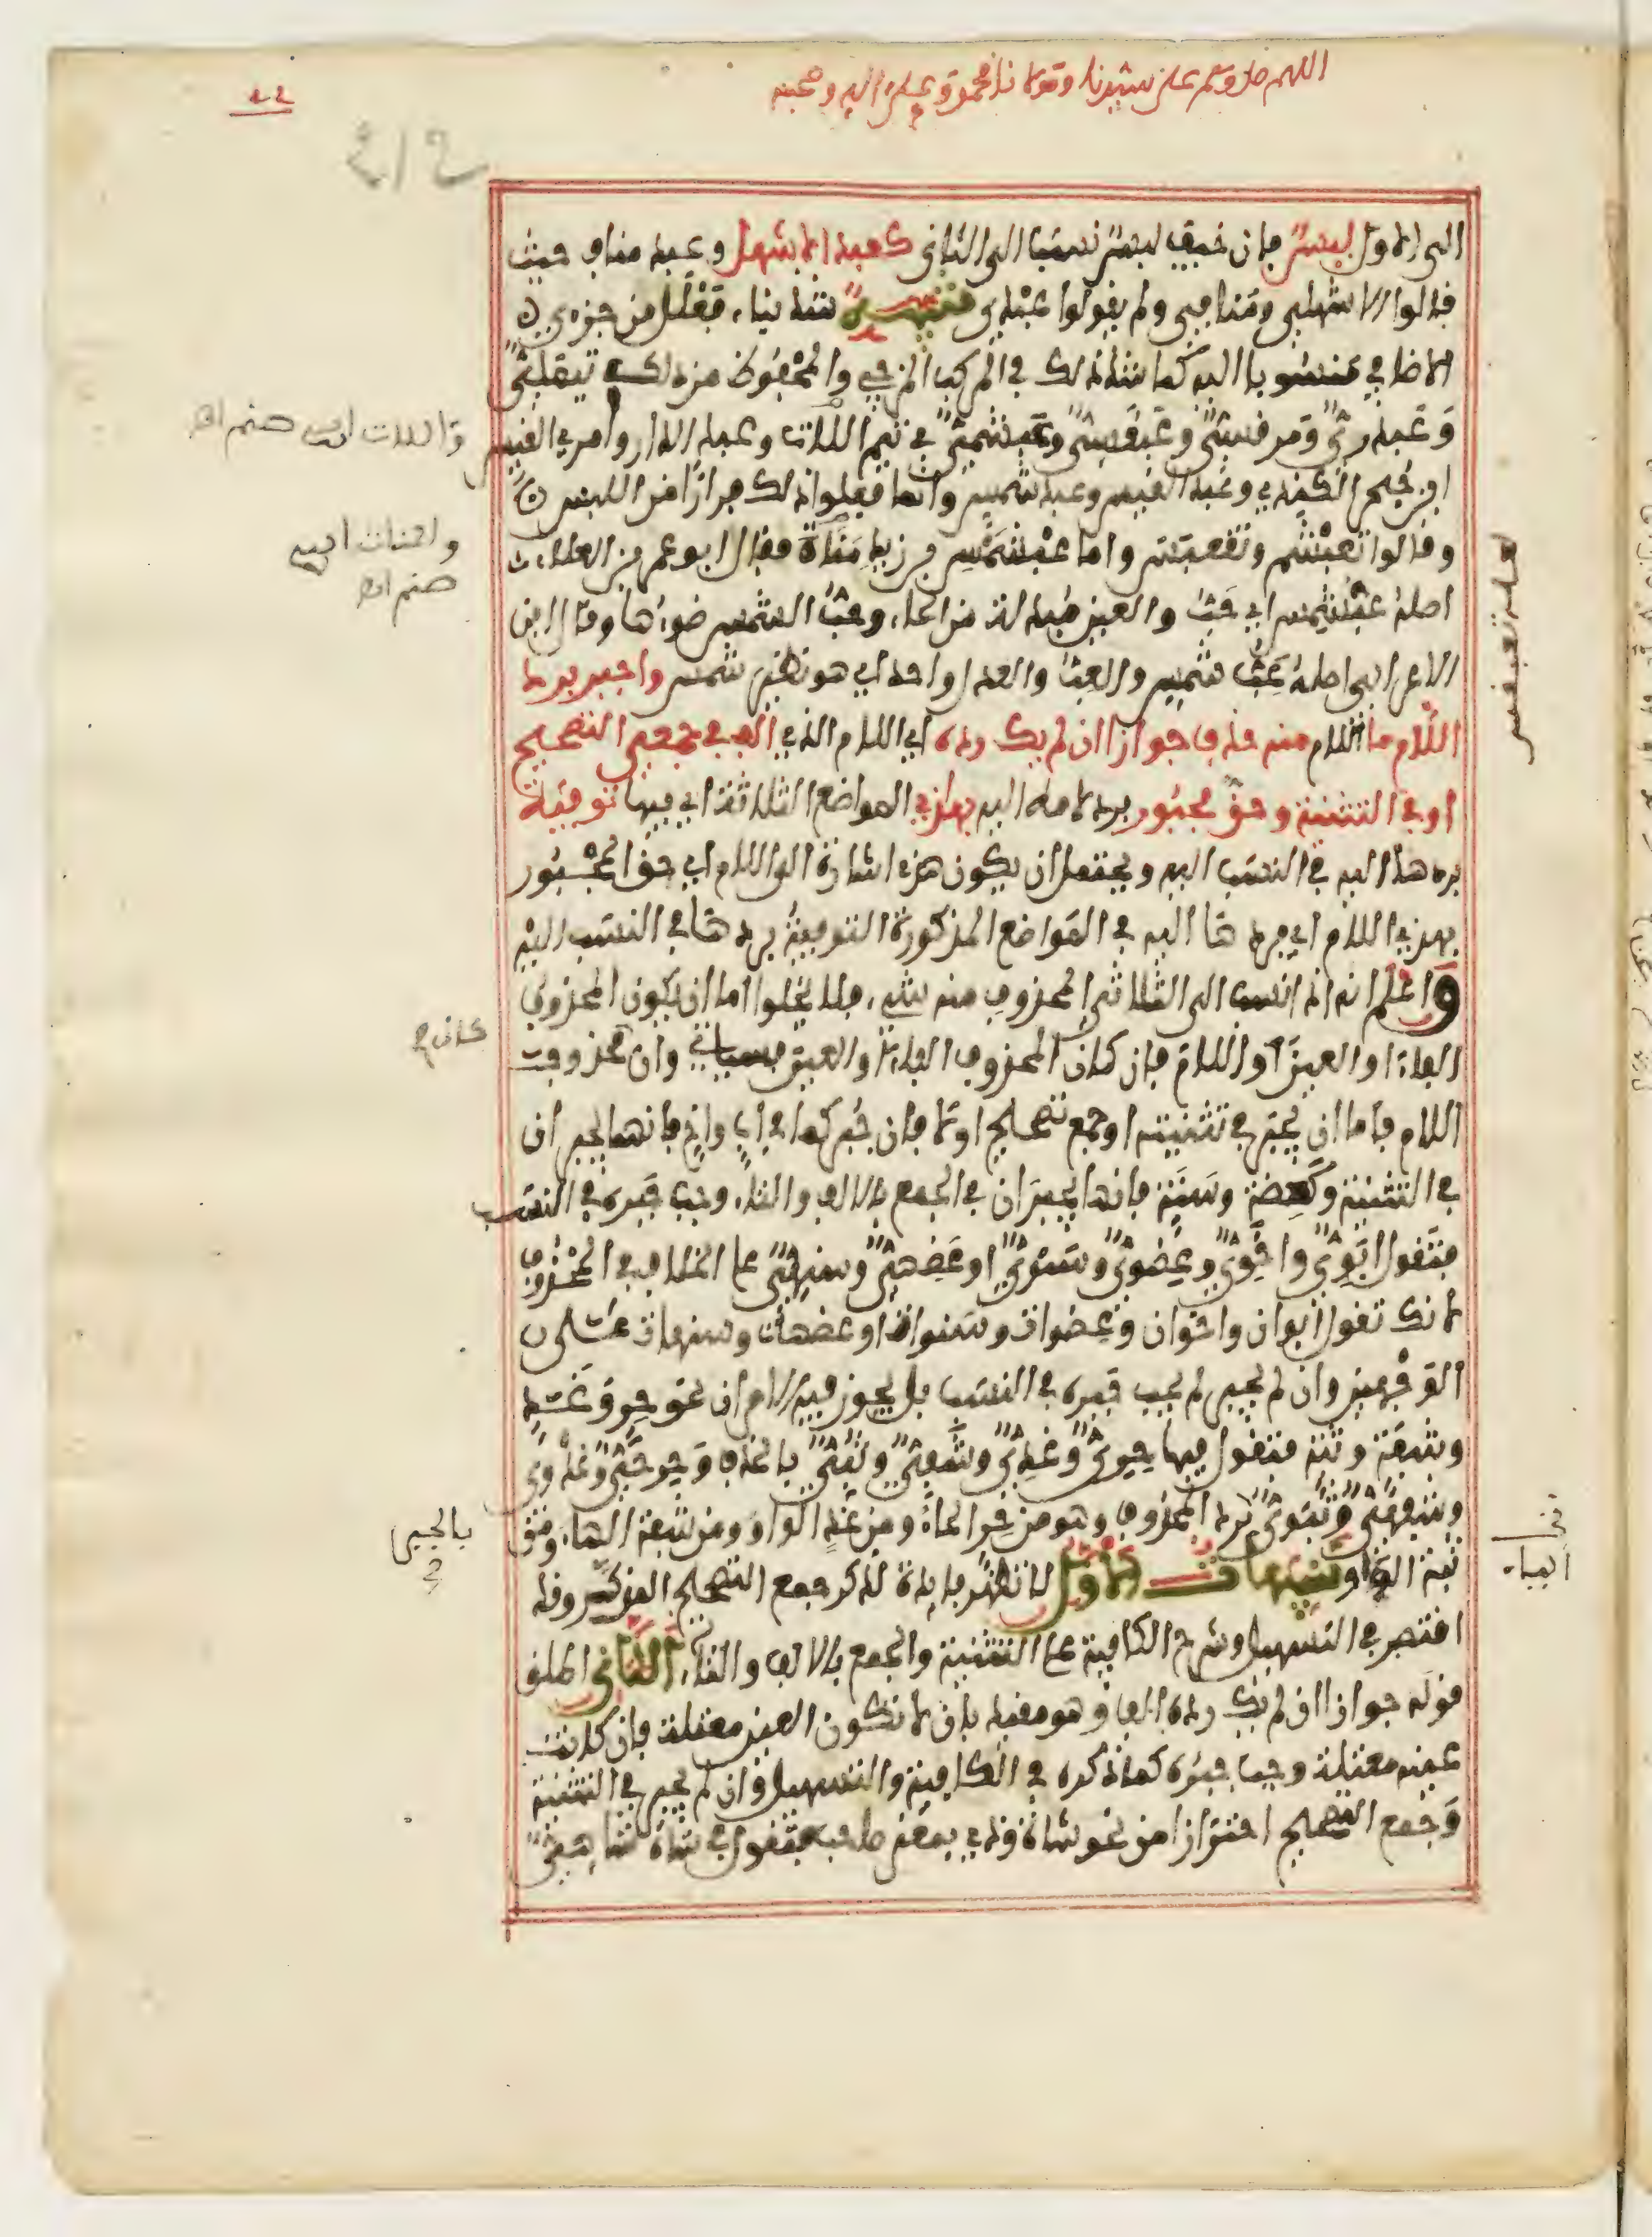 اللهم صل وسلم على سيدنا ومولانا محمد وعلى اله وصحبه
الى الاول لبس فان خيف لبس نسبت الى الثاني كعبد الاشهل وعبد مناف حيث
قالوا الاشهلي ومنافي ولم يقولوا عبدي تنبيه شذ بناء فعلل من جزءي
الاضافي منسوبا اليه كما شذ ذلك في المركب المزجي والمحفوظ من ذلك تيملي
وعبدري ومرقسي وعبقسي وعبشمي في تيم اللات وعبد الدار وامرئ القيس
واللات اسم صنم اه
ابن حجر الكندي وعبد القيس وعبد شمس وانما فعلوا ذلك فرارا من اللبس
وقالوا تعبشم وتعبقس واما عبشمس بن زيد مناة فقال ابو عمرو بن العلاء
ومناة اسم
صنم اه
اصله عب شمس اي حب والعين مبدلة من الحاء وحب الشمس ضوءها وقال ابن
الاعرابي اصله عبء شمس والعبء والعدل واحد اي هو نظير شمس واجبر برد
اللام ما اللام منه حذف جوازا ان لم يك رده اي اللام الذي الف في جمعي التصحيح
او في التثنية وحق مجبور برد لامه اليه بهذي المواضع الثلاثة اي فيها توفيه
برد هذا اليه في النسب اليه ويحتمل ان يكون هذي اشارة الى اللام اي حق المجبور
بهذي اللام اي برد ها اليه في المواضع المذكورة التوفية بردها في النسب اليه
واعلم انه اذا نسب الى الثلاثي المحذوف منه شيء فلا يخلوا اما ان يكون المحذوف
الفاء او العين او اللام فان كان المحذوف الفاء او العين فسياتي وان محذوف
كان ح
اللام فاما ان يجبر في تثنيته او جمع تصحيح او لا فان جبر كما في اب واخ فانهما يجبران
في التثنية وكعضة وسنة فانهما يجبران في الجمع بالالف والتاء وجب جبره في النسب
فتقول ابوي واخوي وعضوي وسنوي او عضهي وسنهي على الخلاف في المحذوف
لانك تقول ابوان واخوان وعضوات وسنوات او عضهات وسنهات على
الوجهين وان لم يجبر لم يجب جبره في النسب بل يجوز فيه الامران نحو حر وغد
وشفة وثبة فتقول فيها حري وغدي وشفي وثبي بالحذف وحرحي وغدوي
وشفهي وثبوي برد المحذوف وهو من حر الحاء ومن غد الواو ومن شفة الهاء ومن
بالجبر
ثبة الواو تنبيهات الاول لا تظهر فايدة لذكر جمع التصحيح المذكر وقد
اقتصر في التسهيل وشرح الكافية على التثنية والجمع بالالف والتاء الثاني اطلق
قوله جوازا ان لم يك رده الف وهو مقيد بان لا تكون العين معتلة فان كانت
عينه معتلة وجب جبره كما ذكره في الكافية والتسهيل وان لم يجبر في التثنية
وجمع التصحيح احترازا من نحو شاة وذي بمعنى صاحب فتقول في شاة شاهي